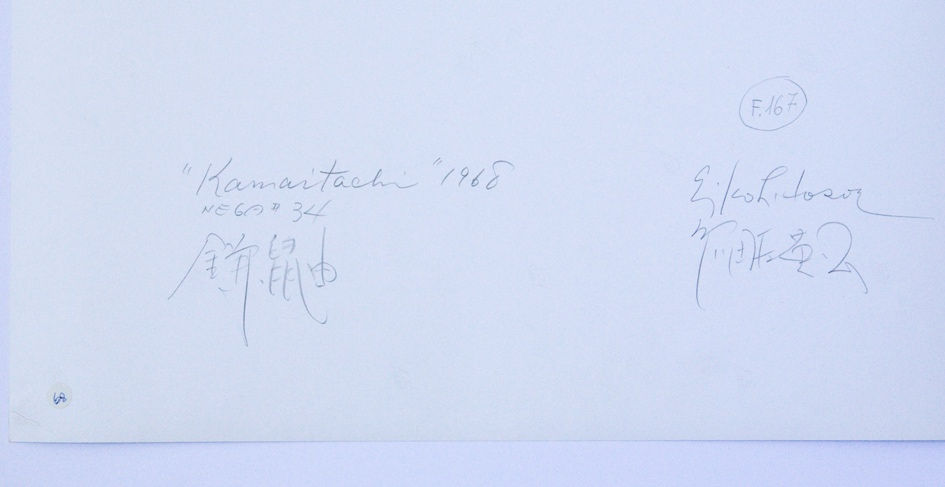 F.167
"Kamaitachi" 1968
Eikoh Hosoe
NEGA # 34
鎌鼬
細江英公